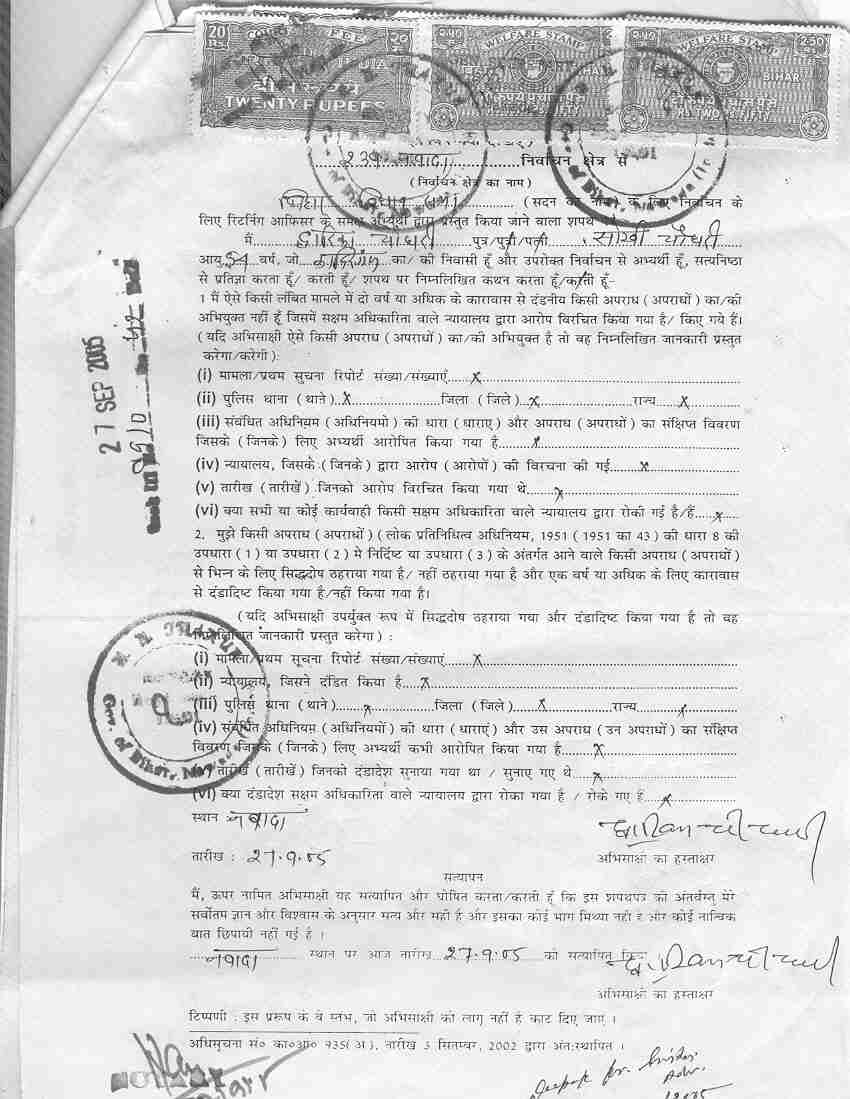 20 Rs. COURT FEE २० रु.
INDIA
बीस रुपये
TWENTY RUPEES
२.५० रु. WELFARE STAMP
BIHAR
WELFARE STAMP 2.50
BIHAR
RS TWO FIFTY
239 नवादा निर्वाचन क्षेत्र से
(निर्वाचन क्षेत्र का नाम)
बिहार विधान सभा (सदन का नाम) के लिए निर्वाचन के
लिए रिटर्निंग आफिसर के समक्ष अभ्यर्थी द्वारा प्रस्तुत किया जाने वाला शपथ
मैं द्वारिका चौधरी पुत्र/पुत्री/पत्नी चौधरी
आयु 54 वर्ष, जो का/की निवासी हूँ और उपरोक्त निर्वाचन से अभ्यर्थी हूँ, सत्यनिष्ठा
से प्रतिज्ञा करता हूँ/ करती हूँ/ शपथ पर निम्नलिखित कथन करता हूँ/करती हूँ-
1 मैं ऐसे किसी लंबित मामले में दो वर्ष या अधिक के कारावास से दंडनीय किसी अपराध (अपराधों) का/की
अभियुक्त नहीं हूँ जिसमें सक्षम अधिकारिता वाले न्यायालय द्वारा आरोप विरचित किया गया है/ किए गये हैं।
(यदि अभिसाक्षी ऐसे किसी अपराध (अपराधों) का/की अभियुक्त है तो वह निम्नलिखित जानकारी प्रस्तुत
करेगा/करेगी):
(i) मामला/प्रथम सुचना रिपोर्ट संख्या/संख्याएँ x
(ii) पुलिस थाना (थाने) x जिला (जिले) x राज्य x
(iii) संबंधित अधिनियम (अधिनियमो) की धारा (धाराए) और अपराध (अपराधों) का संक्षिप्त विवरण
जिसके (जिनके) लिए अभ्यर्थी आरोपित किया गया है x
(iv) न्यायालय, जिसके (जिनके) द्वारा आरोप (आरोपों) की विरचना की गई x
(v) तारीख (तारीखें) जिनको आरोप विरचित किया गया थे x
(vi) क्या सभी या कोई कार्यवाही किसी सक्षम अधिकारिता वाले न्यायालय द्वारा रोकी गई है/हैं x
2. मुझे किसी अपराध (अपराधों) (लोक प्रतिनिधित्व अधिनियम, 1951 (1951 का 43) की धारा 8 की
उपधारा (1) या उपधारा (2) मे निर्दिष्ट या उपधारा (3) के अंतर्गत आने वाले किसी अपराध (अपराधों)
से भिन्न के लिए सिद्धदोष ठहराया गया है/ नहीं ठहराया गया है और एक वर्ष या अधिक के लिए कारावास
से दंडादिष्ट किया गया है/नहीं किया गया है।
(यदि अभिसाक्षी उपर्युक्त रूप में सिद्धदोष ठहराया गया और दंडादिष्ट किया गया है तो वह
निम्नलिखित जानकारी प्रस्तुत करेगा) :
(i) मामला/प्रथम सूचना रिपोर्ट संख्या/संख्याएं x
(ii) न्यायालय, जिसने दंडित किया है x
(iii) पुलिस थाना (थाने) x जिला (जिले) x राज्य x
(iv) संबंधित अधिनियम (अधिनियमों) की धारा (धाराएं) और उस अपराध (उन अपराधों) का संक्षिप्त
विवरण जिसके (जिनके) लिए अभ्यर्थी कभी आरोपित किया गया है x
(v) तारीख (तारीखें) जिनको दंडादेश सुनाया गया था / सुनाए गए थे x
(vi) क्या दंडादेश सक्षम अधिकारिता वाले न्यायालय द्वारा रोका गवा है / रोके गए हैं x
स्थान नवादा
तारीख : 27.9.05
अभिसाक्षी का हस्ताक्षर
सत्यापन
मैं, ऊपर नामित अभिसाक्षी यह सत्यापित और घोषित करता/करती हूँ कि इस शपथपत्र की अंतर्वस्तु मेरे
सर्वोतम ज्ञान और विश्वास के अनुसार सत्य और सही है और इसका कोई भाग मिथ्या नहीं है और कोई तात्विक
बात छिपायी नहीं गई है ।
नवादा स्थान पर आज तारीख 27.9.05 को सत्यापित किया
अभिसाक्षी का हस्ताक्षर
टिप्पणी : इस प्ररूप के वे स्तंभ, जो अभिसाक्षी को लागू नहीं है काट दिए जाएं ।
अधिसूचना सं० का०आ० 935(अ), तारीख 3 सितम्बर, 2002 द्वारा अंत:स्थापित ।
27 SEP 2005